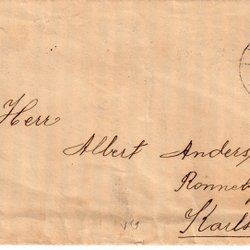 Herr
Albert Anders
Ronneb
Karls